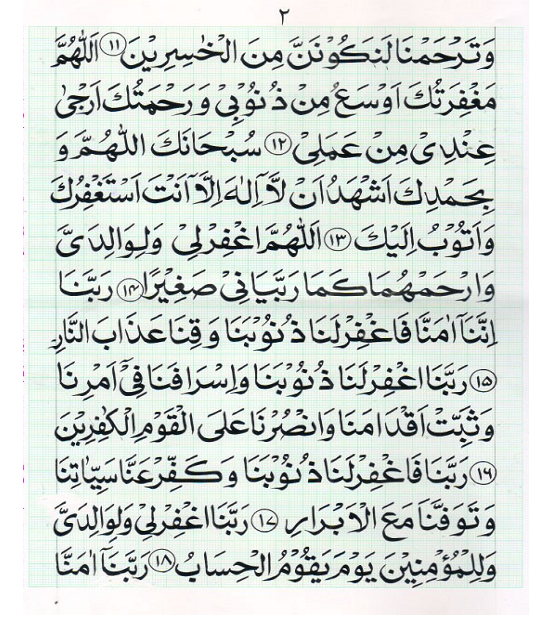 ٢
وَتَرْحَمْنَا لَنَكُوْنَنَّ مِنَ الْخٰسِرِيْنَ ⑪ اَللّٰهُمَّ
مَغْفِرَتُكَ اَوْسَعُ مِنْ ذُنُوْبِيْ وَرَحْمَتُكَ اَرْجٰى
عِنْدِىْ مِنْ عَمَلِىْ ⑫ سُبْحَانَكَ اللّٰهُمَّ وَ
بِحَمْدِكَ اَشْهَدُ اَنْ لَّا اِلٰهَ اِلَّا اَنْتَ اَسْتَغْفِرُكَ
وَاَتُوْبُ اِلَيْكَ ⑬ اَللّٰهُمَّ اغْفِرْلِىْ وَلِوَالِدَىَّ
وَارْحَمْهُمَا كَمَا رَبَّيَانِىْ صَغِيْرًا ⑭ رَبَّنَا
اِنَّنَا اٰمَنَّا فَاغْفِرْلَنَا ذُنُوْبَنَا وَقِنَا عَذَابَ النَّارِ
⑮ رَبَّنَا اغْفِرْلَنَا ذُنُوْبَنَا وَاِسْرَافَنَا فِىْ اَمْرِنَا
وَثَبِّتْ اَقْدَامَنَا وَانْصُرْنَا عَلَى الْقَوْمِ الْكٰفِرِيْنَ
⑯ رَبَّنَا فَاغْفِرْلَنَا ذُنُوْبَنَا وَكَفِّرْ عَنَّا سَيِّاٰتِنَا
وَتَوَفَّنَا مَعَ الْاَبْرَارِ ⑰ رَبَّنَا اغْفِرْلِىْ وَلِوَالِدَىَّ
وَلِلْمُؤْمِنِيْنَ يَوْمَ يَقُوْمُ الْحِسَابُ ⑱ رَبَّنَا اٰمَنَّا